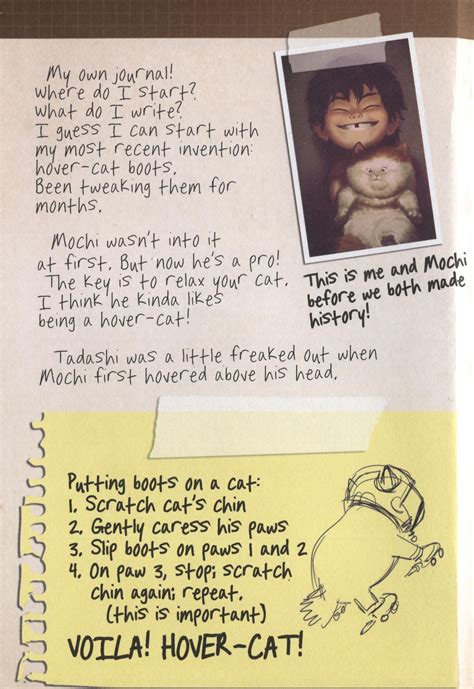 My own journal!
Where do I start?
What do I write?
I guess I can start with
my most recent invention:
hover-cat boots.
Been tweaking them for
months.
Mochi wasn't into it
at first. But now he's a pro!
The key is to relax your cat.
I think he kinda likes
being a hover-cat!
This is me and Mochi
before we both made
history!
Tadashi was a little freaked out when
Mochi first hovered above his head.
Putting boots on a cat:
1. Scratch cat's chin
2. Gently caress his paws
3. Slip boots on paws 1 and 2
4. On paw 3, stop; scratch
chin again; repeat.
(this is important)
VOILA! HOVER-CAT!